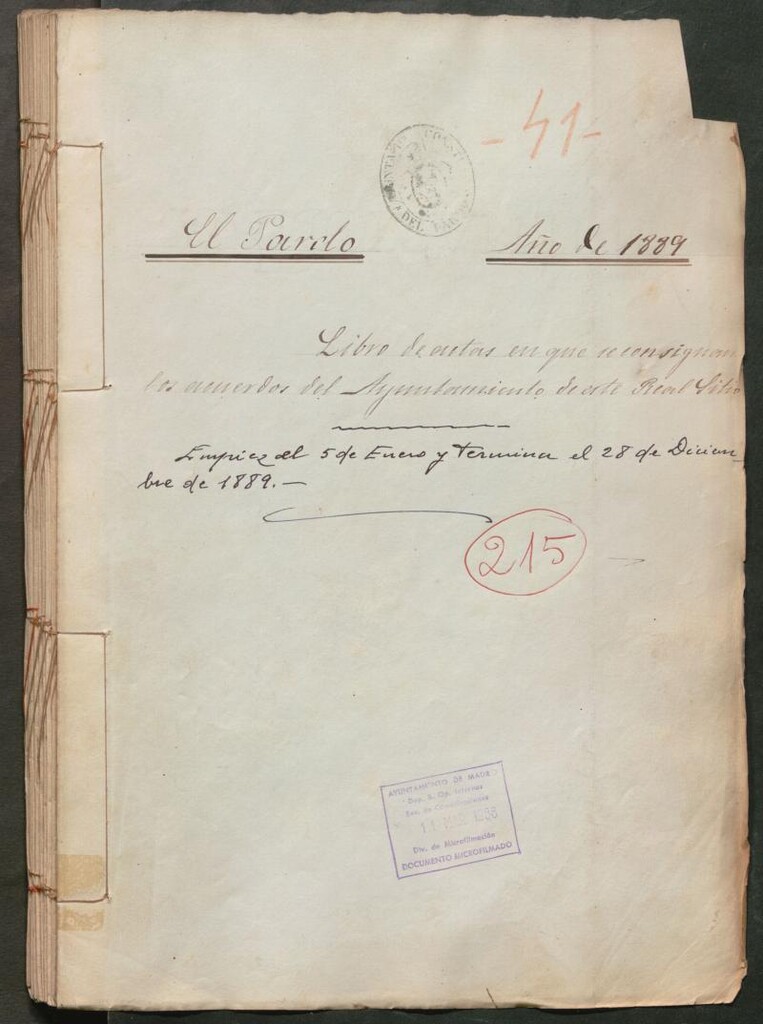 - 41 -
El Pardo Año de 1889
Libro de actas en que se consignan
los acuerdos del Ayuntamiento de este Real Sitio
Empieza el 5 de Enero y termina el 28 de Diciem-
bre de 1889. —
215
AYUNTAMIENTO DE MADRID
Div. de Microfilmación
DOCUMENTO MICROFILMADO